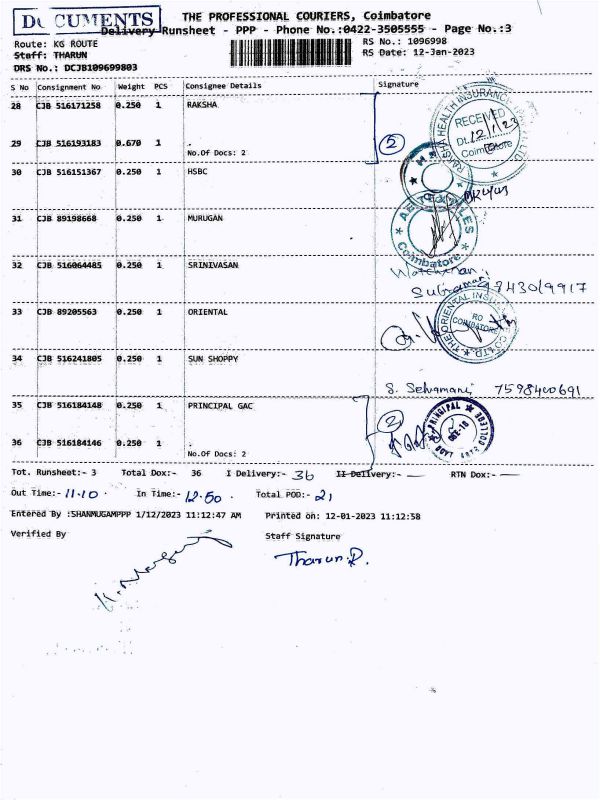 DOCUMENTS
THE PROFESSIONAL COURIERS, Coimbatore
Delivery Runsheet - PPP - Phone No.:0422-3505555 - Page No.:3
Route: KG ROUTE
RS No.: 1096998
Staff: THARUN
RS Date: 12-Jan-2023
DRS No.: DCJB109699803
S No Consignment No Weight PCS Consignee Details Signature
28 CJB 516171258 0.250 1 RAKSHA
RAKSHA HEALTH INSURANCE
RECEIVED
Dt. 12/1/23
Coimbatore
5
29 CJB 516193183 0.670 1 .
No.Of Docs: 2
30 CJB 516151367 0.250 1 HSBC
31 CJB 89198668 0.250 1 MURUGAN
Coimbatore
32 CJB 516064485 0.250 1 SRINIVASAN
33 CJB 89205563 0.250 1 ORIENTAL
THE ORIENTAL INSU
RO
COIMBATORE
CO.LTD.
34 CJB 516241805 0.250 1 SUN SHOPPY
S. Selvamani 7598400691
35 CJB 516184148 0.250 1 PRINCIPAL GAC
2
PRINCIPAL
36 CJB 516184146 0.250 1 .
No.Of Docs: 2
Tot. Runsheet:- 3 Total Dox:- 36 I Delivery:- 36 II Delivery:- — RTN Dox:- —
Out Time:- 11.10 In Time:- 12.50 Total POD:- 21
Entered By :SHANMUGAMPPP 1/12/2023 11:12:47 AM Printed on: 12-01-2023 11:12:58
Verified By Staff Signature
Tharun.P.